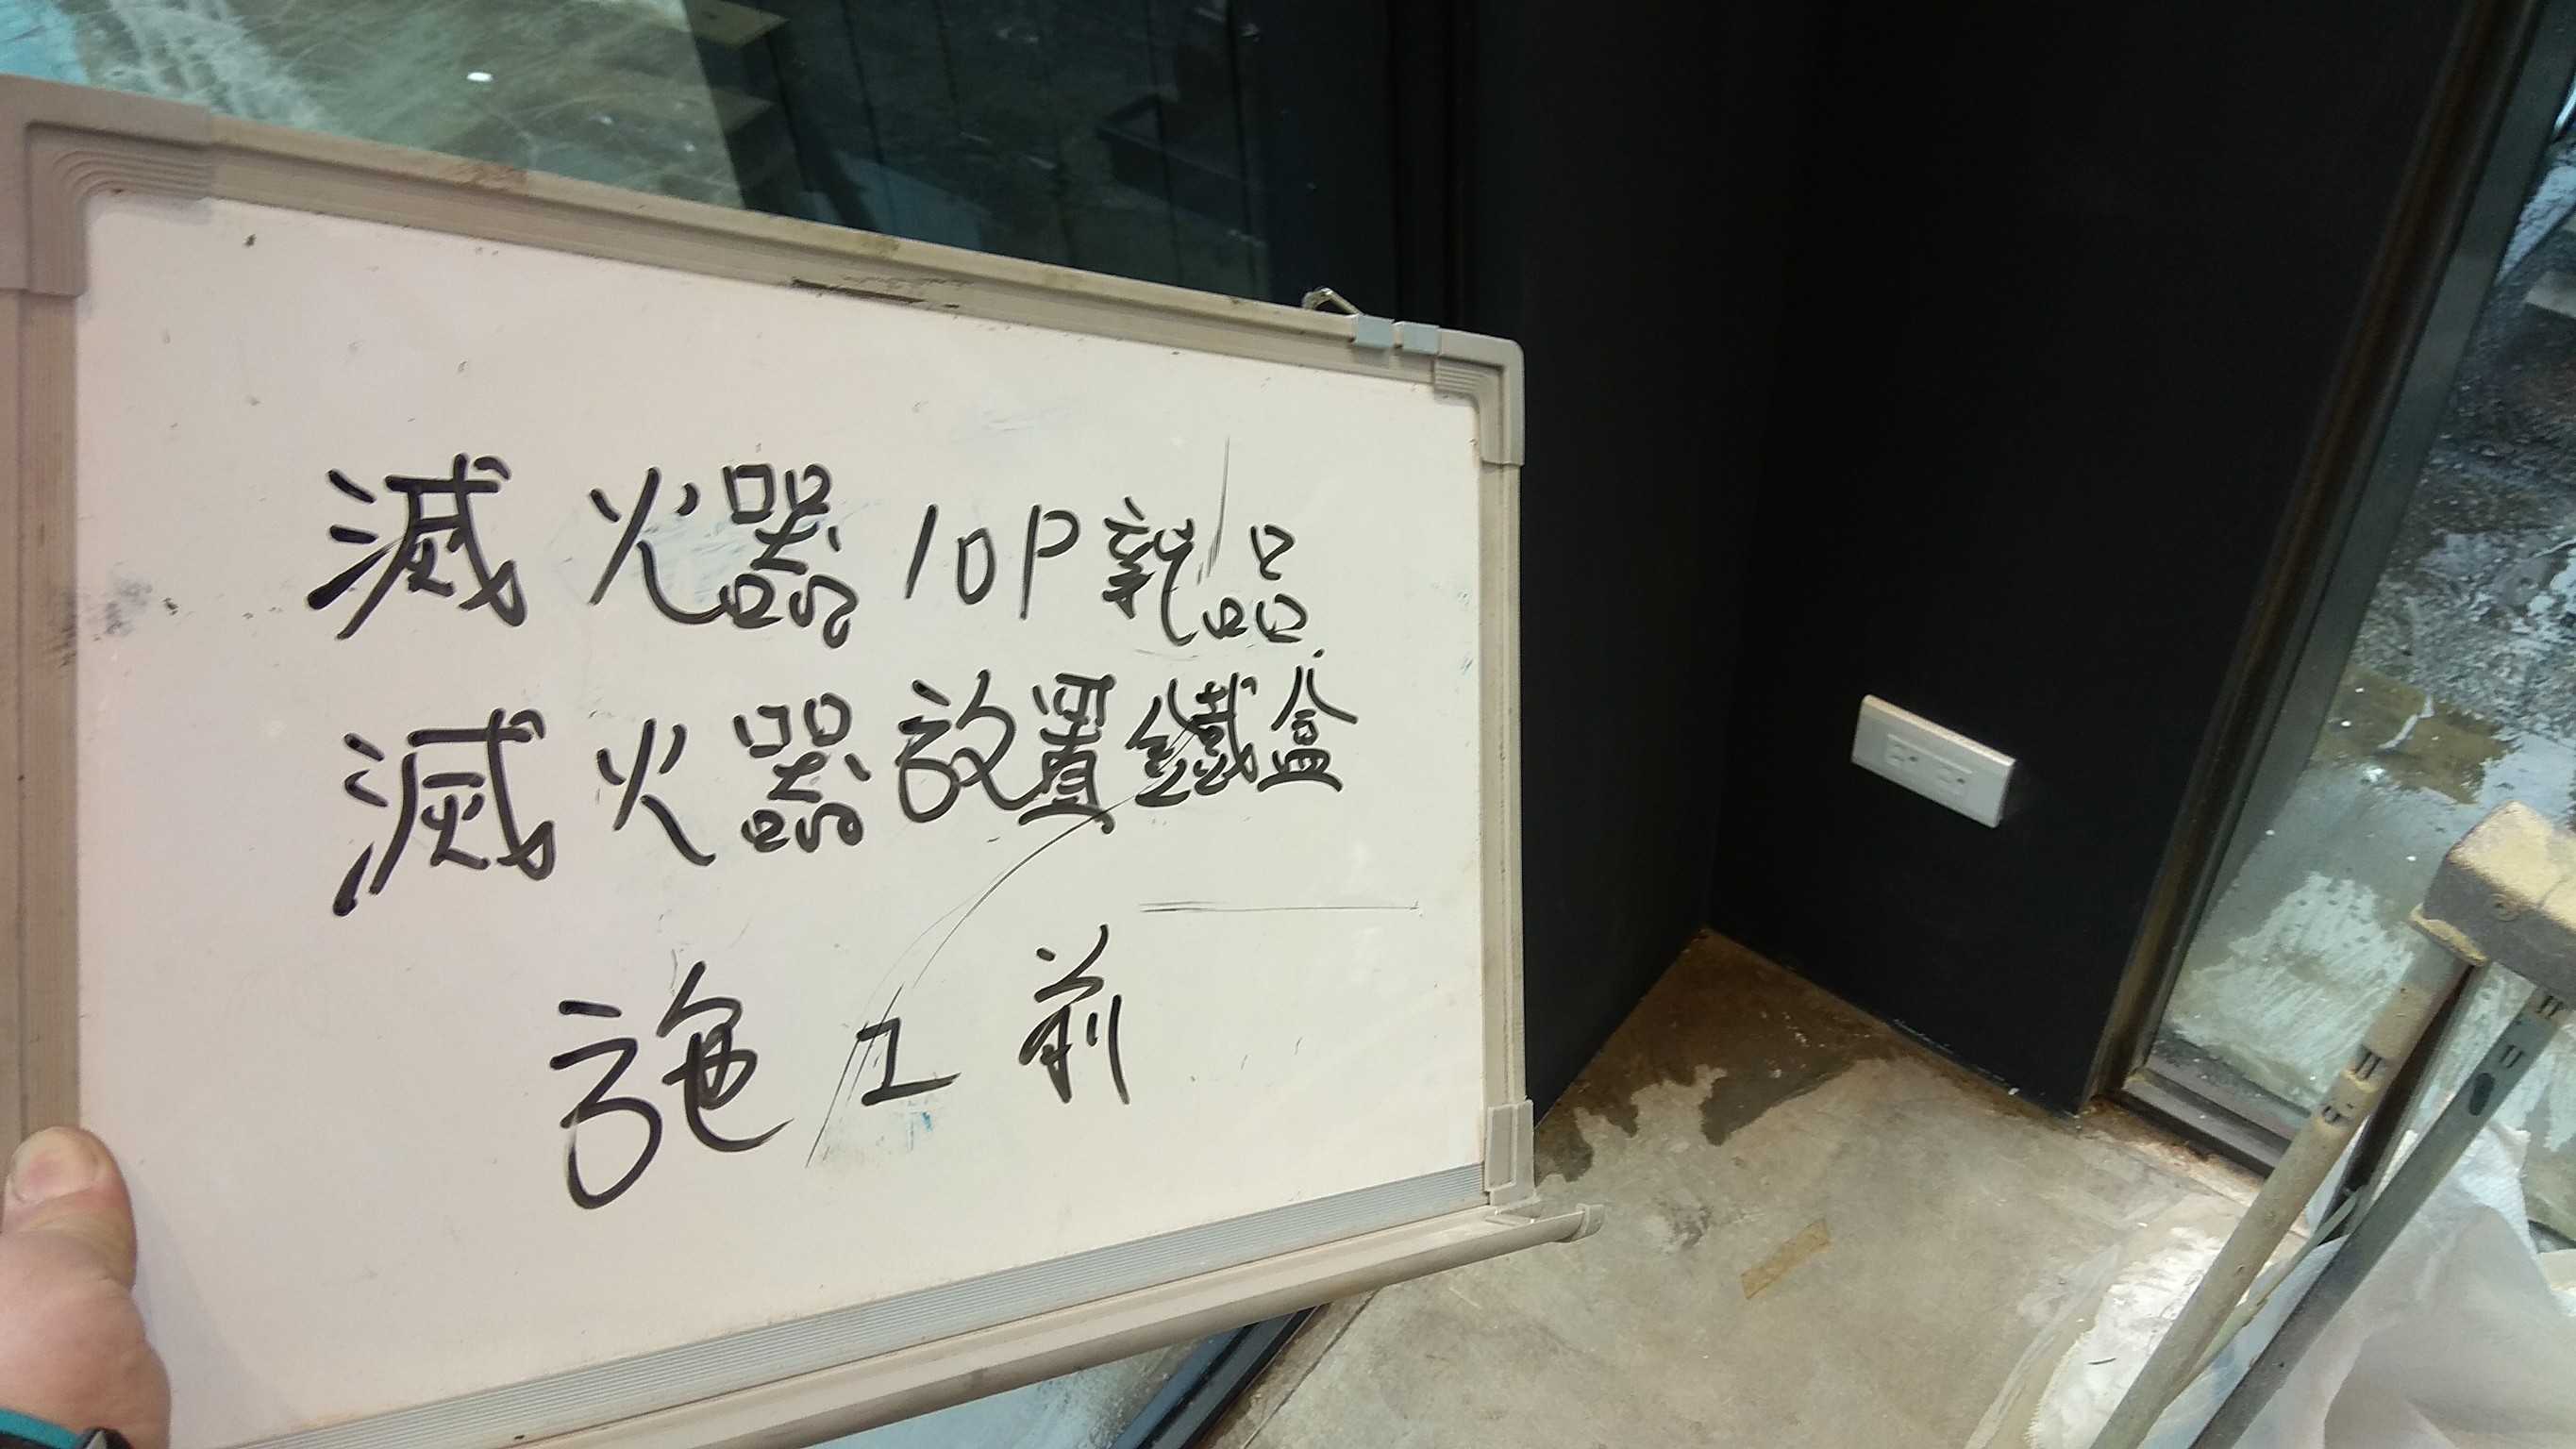 滅火器10P新品
滅火器放置鐵盒
施工前